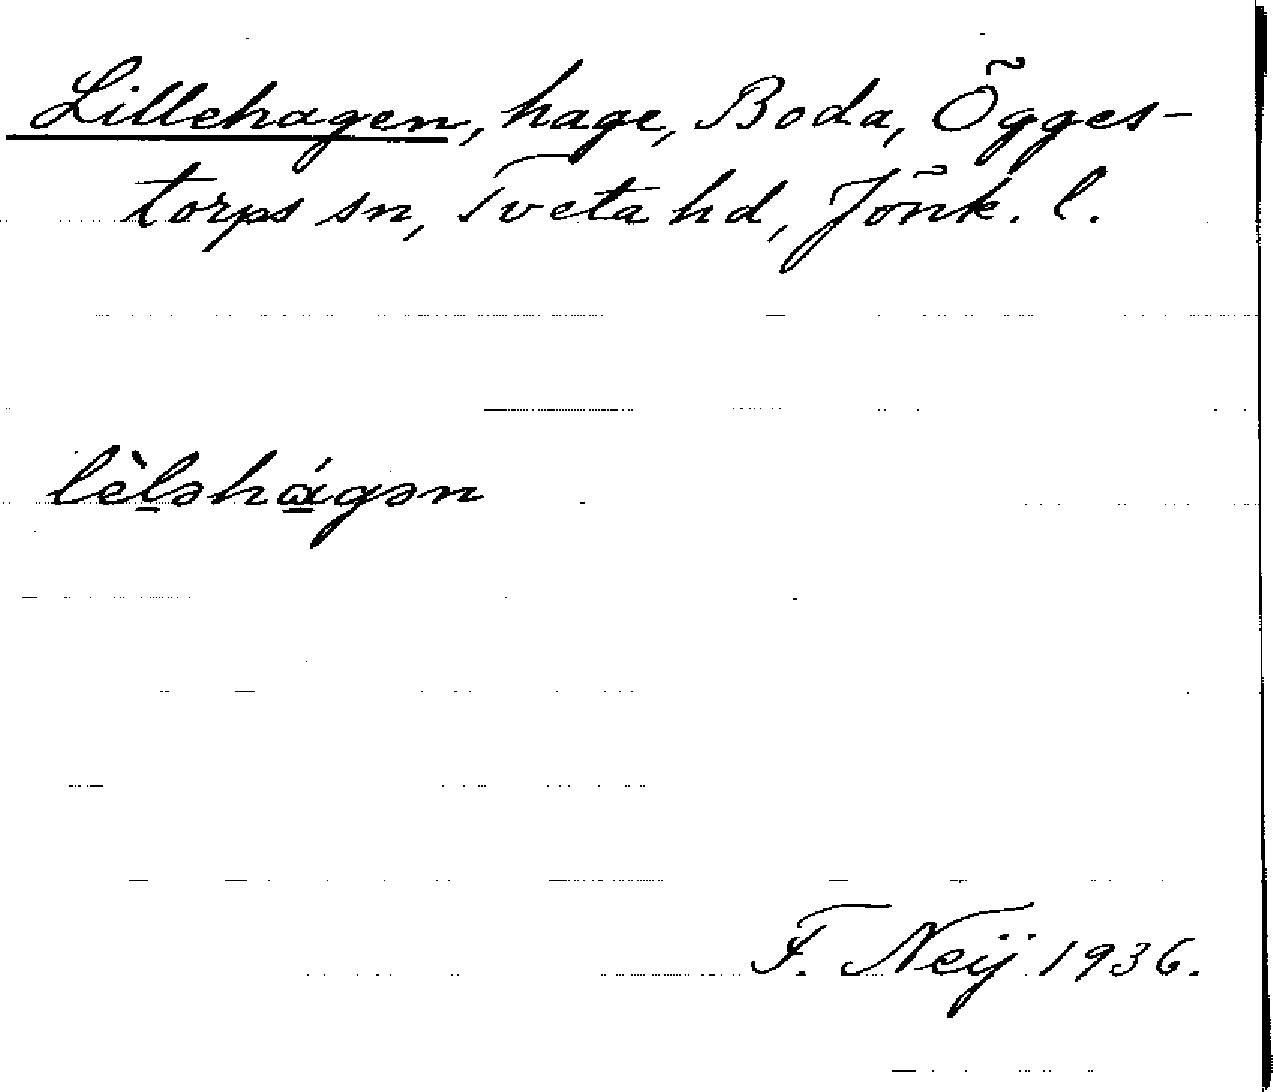 Lillehagen, hage, Boda, Ögges-
torps sn, Tveta hd, Jönk. l.
lèl̲əhά̲gən
F. Neij 1936.